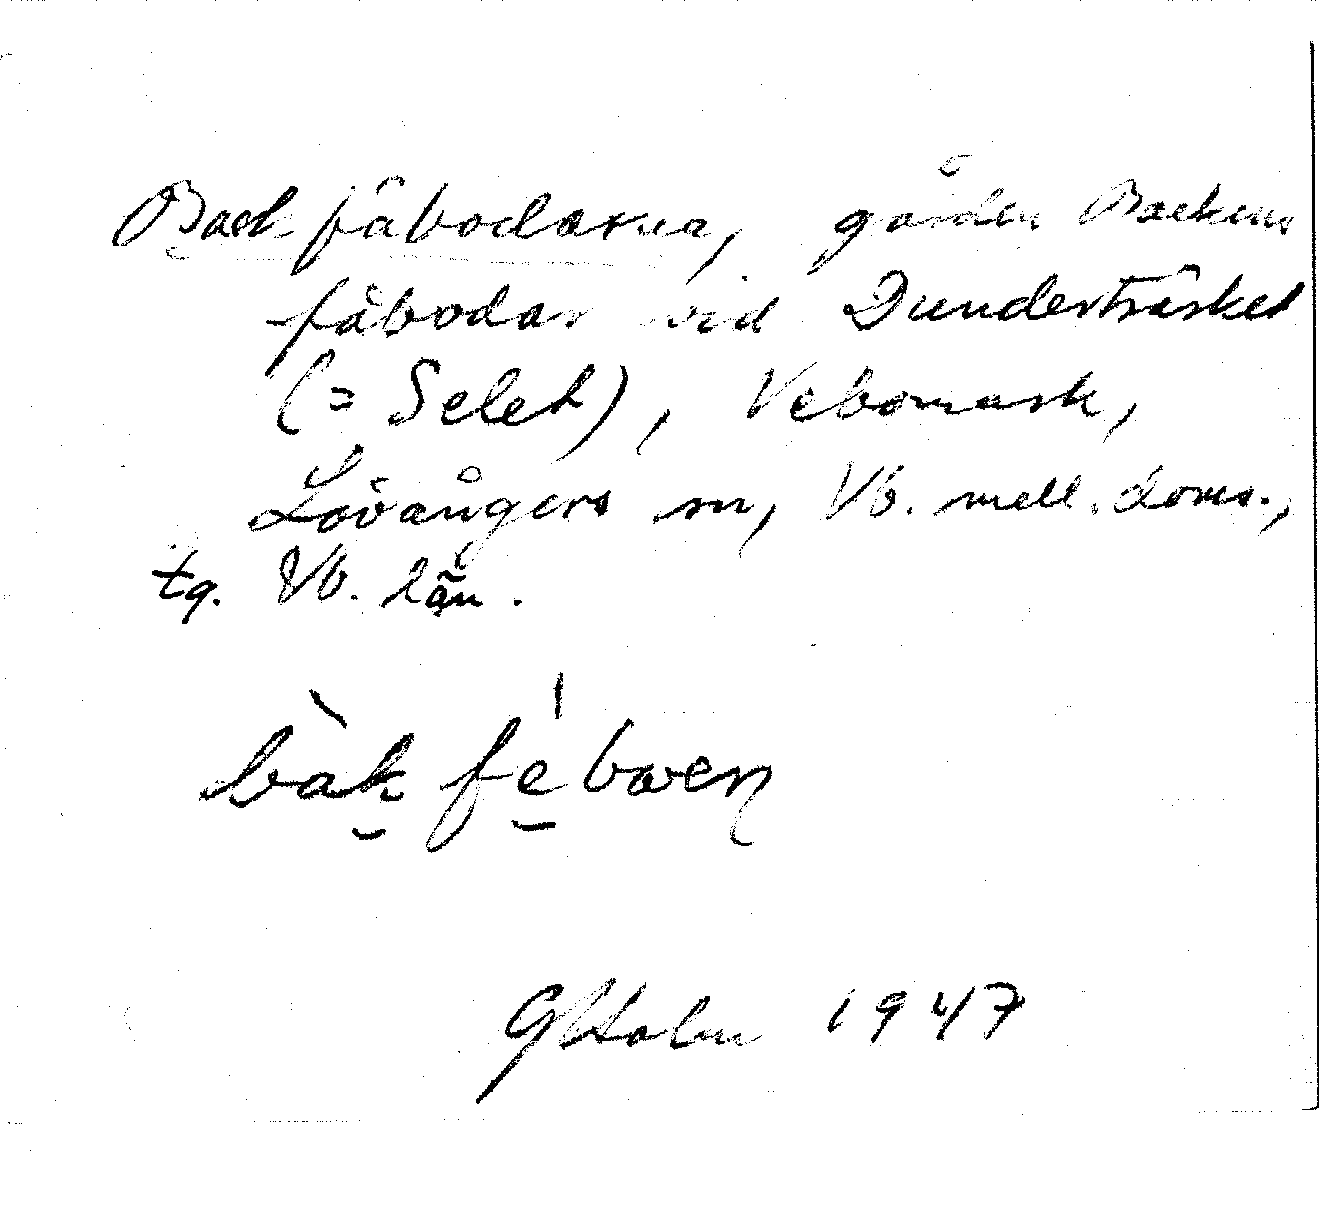 Backfäbodarna, gården Backens
fäbodar vid Dunderträsket
(= Selet), Vebomark,
Lövångers sn, Vb. mell. doms.,
tg. Vb. län.
bàk fe̱bωen
GHolm 1947